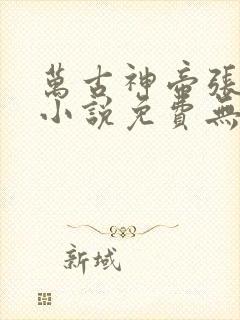 萬古神帝張
小說免費無
新域